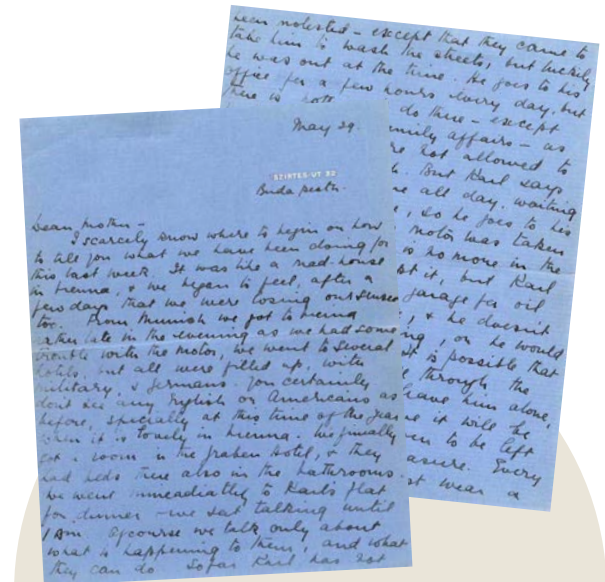 May 29.
SZIRTES-UT 32
Buda pesth.
Dear Mother -
I scarcely know where to begin or how
to tell you what we have been doing for
this last week. It was like a mad-house
in Vienna, & we began to feel, after a
few days that we were losing our senses
too. From Munich we got to Vienna
rather late in the evening as we had some
trouble with the motor, we went to several
hotels, but all were filled up, with
military, & Germans. You certainly
don't see any English or Americans as
before, specially at this time of the year
when it is lovely in Vienna. We finally
got a room in the Hotel, & they
had beds there also in the bathrooms
We went immeadiatly to Karl's flat
for dinner - we sat talking until
1 AM. Ofcourse we talk only about
what is happening to them, and what
they can do So far Karl has not
been molested - except that they came to
take him to wash the streets, but luckily
he was out at the time. He goes to his
office for a few hours every day, but
there is do there - except
family affairs - as
are not allowed to
But Karl says
all day, waiting
, so he goes to his
motor was taken
is no more in the
it, but Karl
garage for oil
, & he doesn't
, or he would
It is possible that
through the
leave him alone,
it will be
to be left
Every
wear a